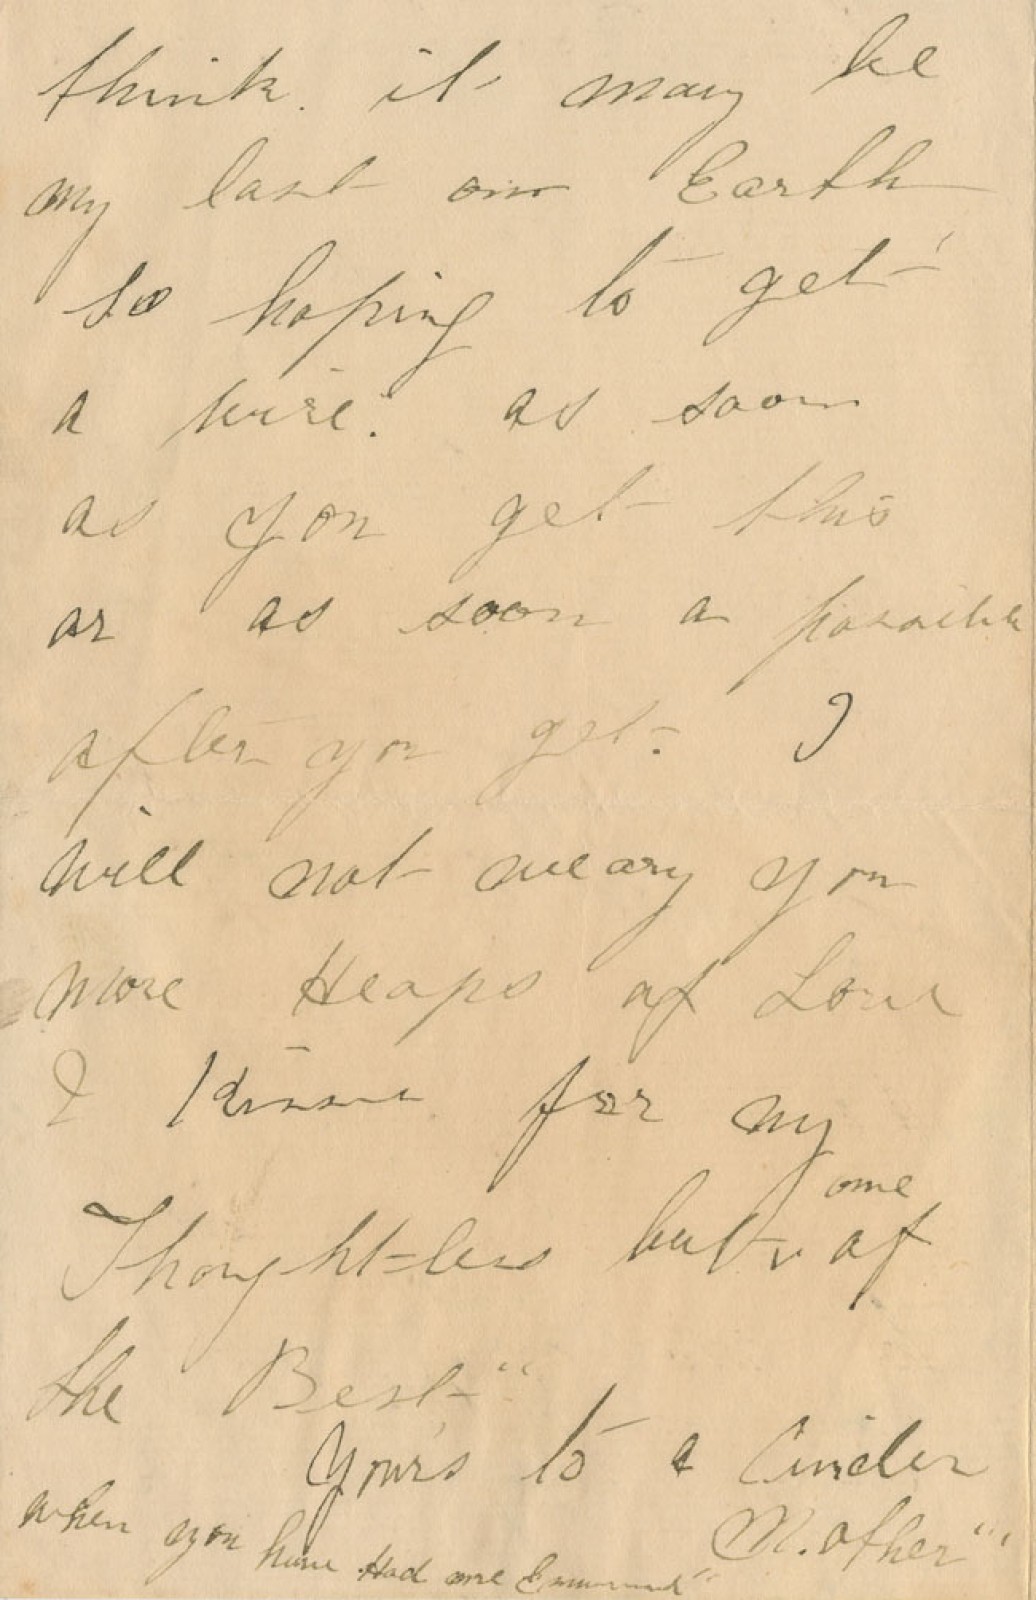 think. it may be
my last on Earth
so hoping to get
a wire. as soon
as you get this
or as soon a possible
after you get. I
will not weary you
more Heaps of Love
& Kisses for my
Thought-less but one of
the Best"
Yours to a Cinder
M.other"
when you have Had one